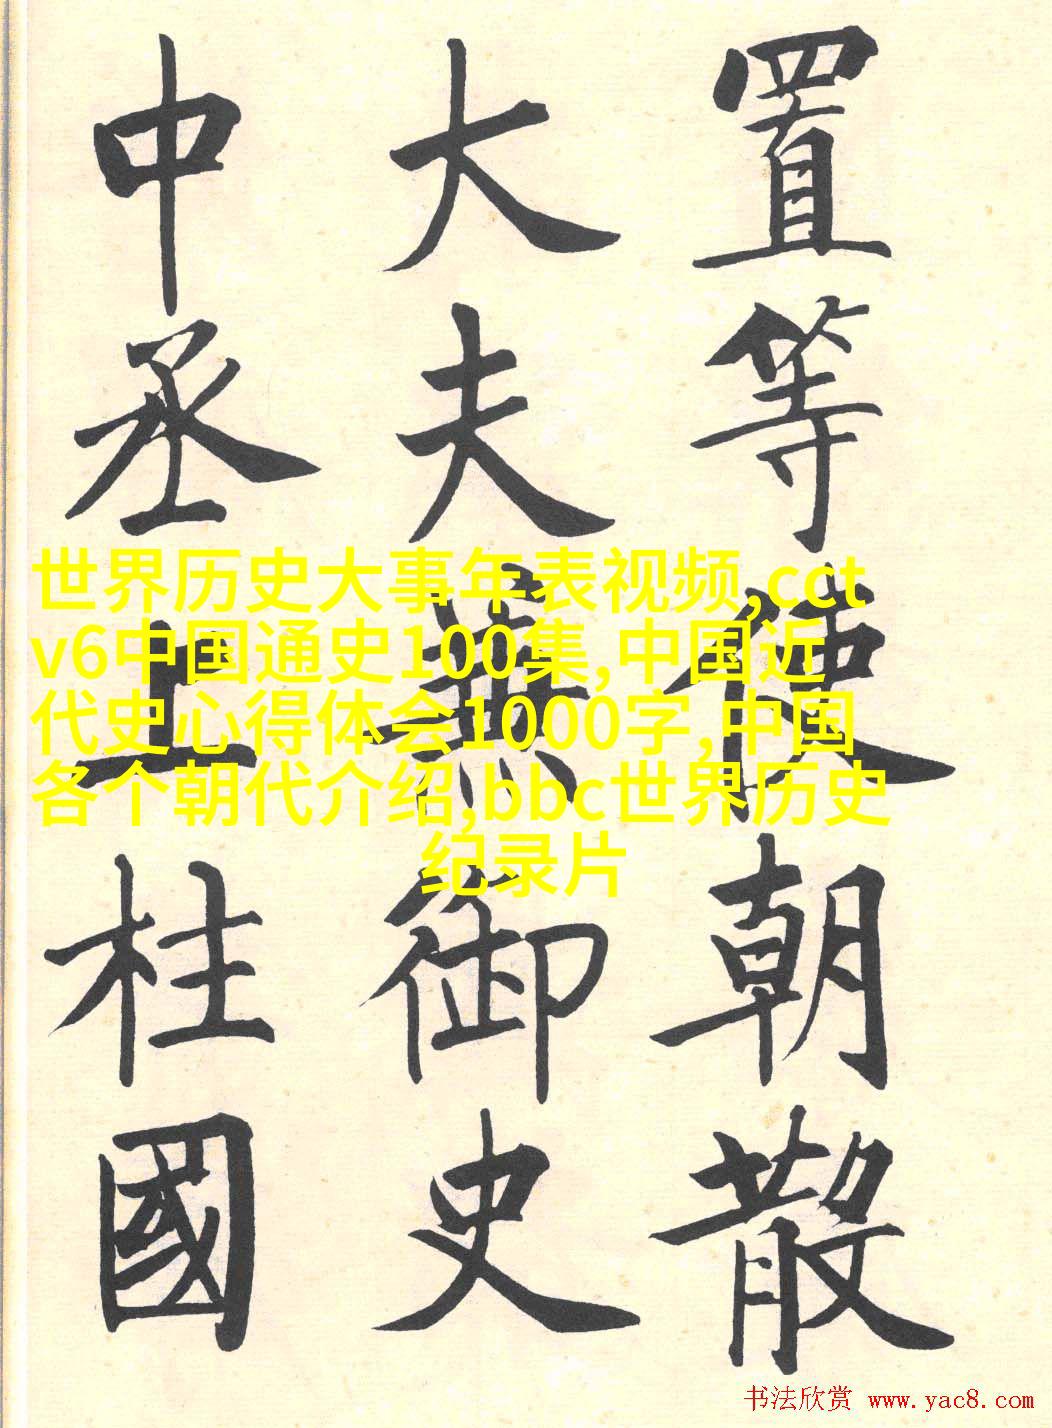 置等使朝散
大夫兼御史
中丞上柱國
世界历史大事年表视频,cct
v6中国通史100集,中国近
代史心得体会1000字,中国
各个朝代介绍,bbc世界历史
纪录片
书法欣赏 www.yac8.com